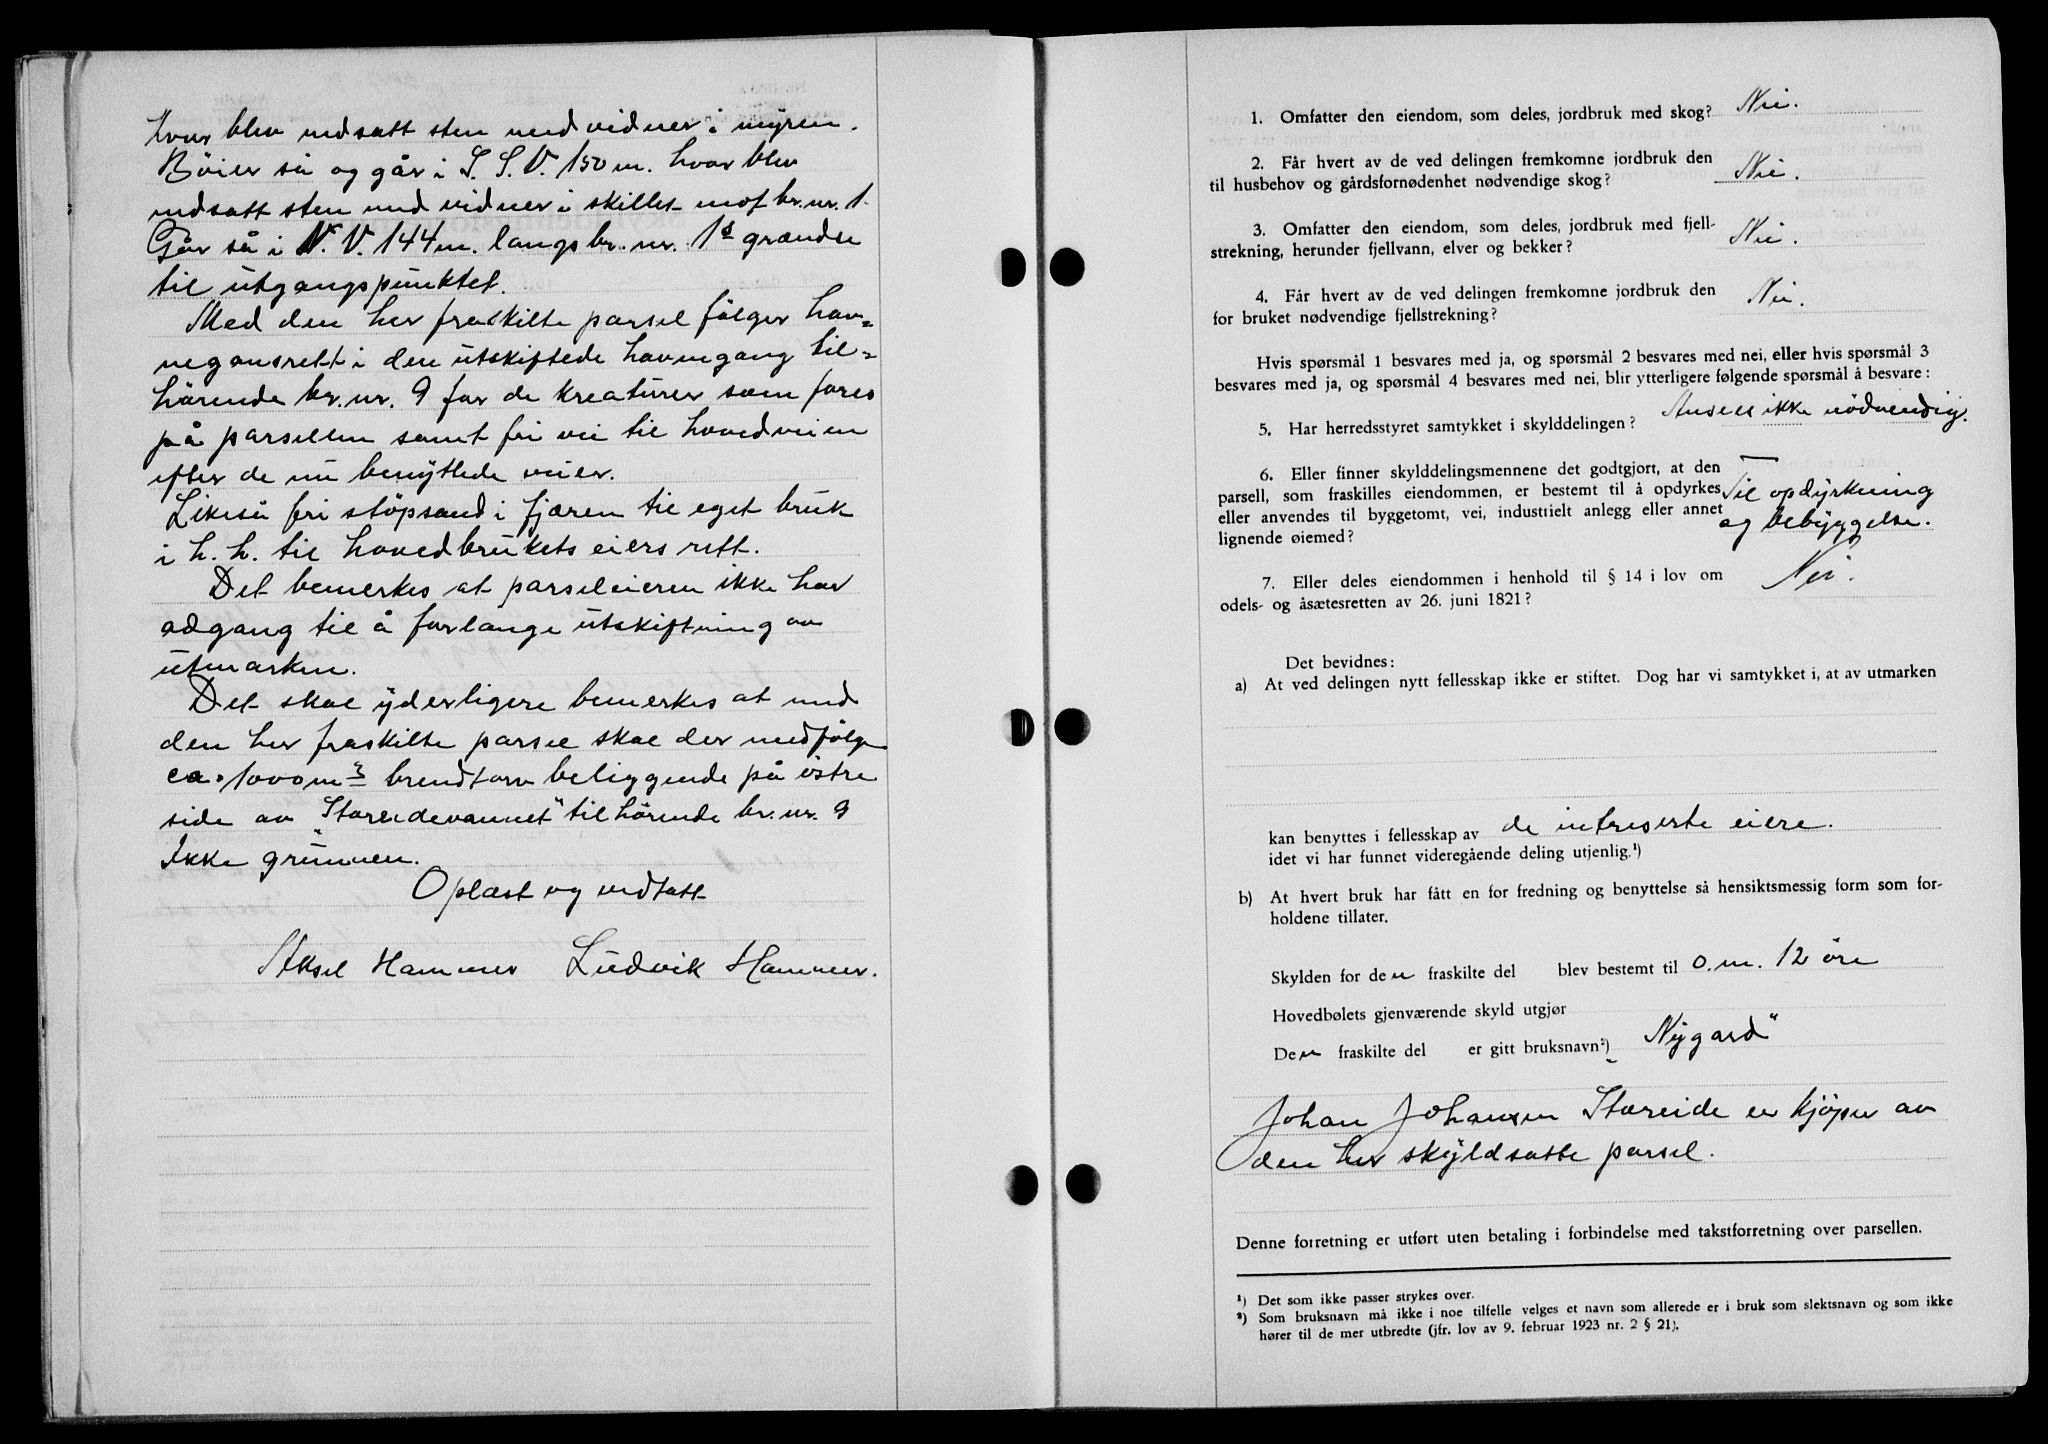 hvor blev nedsatt sten med vidner i myren.
Böier så og går i S. S. V. 150 m. hvor blev
nedsatt sten med vidner i skillet mot br. nr. 1.
Går så i N. V. 144 m. langs br. nr. 1s grændse
til utgangspunktet.
Med den her fraskilte parsel følger hav=
negansrett i den utskiftede havnegang til=
hörende br. nr. 9 for de kreaturer som fores
på parsellen samt fri vei til hovedveien
efter de nu benyttede veier.
Likeså fri støpsand i fjæren til eget bruk
i h. h. til hovedbrukets eiers rett.
Det bemerkes at parseleieren ikke har
adgang til å forlange utskiftning av
utmarken.
Det skal yderligere bemerkes at med
den her fraskilte parsel skal der medfølge
ca. 1000 m3 brendtorv beliggende på östre
side av "Storeidevannet" tilhörende br. nr. 9
Ikke grunnen.
Oplæst og vedtatt
Aksel Hammer Ludvik Hammer.
1. Omfatter den eiendom, som deles, jordbruk med skog? Nei.
2. Får hvert av de ved delingen fremkomne jordbruk den
til husbehov og gårdsfornødenhet nødvendige skog? Nei.
3. Omfatter den eiendom, som deles, jordbruk med fjell-
strekning, herunder fjellvann, elver og bekker? Nei.
4. Får hvert av de ved delingen fremkomne jordbruk den
for bruket nødvendige fjellstrekning? Nei.
Hvis spørsmål 1 besvares med ja, og spørsmål 2 besvares med nei, eller hvis spørsmål 3
besvares med ja, og spørsmål 4 besvares med nei, blir ytterligere følgende spørsmål å besvare:
5. Har herredsstyret samtykket i skylddelingen? Ansees ikke nödvendig.
6. Eller finner skylddelingsmennene det godtgjort, at den
parsell, som fraskilles eiendommen, er bestemt til å opdyrkes Til opdyrkning
eller anvendes til byggetomt, vei, industrielt anlegg eller annet og bebyggelse.
lignende øiemed?
7. Eller deles eiendommen i henhold til § 14 i lov om Nei.
odels- og åsætesretten av 26. juni 1821?
Det bevidnes:
a) At ved delingen nytt fellesskap ikke er stiftet. Dog har vi samtykket i, at av utmarken
kan benyttes i fellesskap av de intreserte eiere.
idet vi har funnet videregående deling utjenlig.¹)
b) At hvert bruk har fått en for fredning og benyttelse så hensiktsmessig form som for-
holdene tillater.
Skylden for den fraskilte del blev bestemt til 0. m. 12 öre
Hovedbølets gjenværende skyld utgjør
Den fraskilte del er gitt bruksnavn²) "Nygard"
Johan Johansen Storeide er kjøper av
den her skyldsatte parsel.
Denne forretning er utført uten betaling i forbindelse med takstforretning over parsellen.
¹) Det som ikke passer strykes over.
²) Som bruksnavn må ikke i noe tilfelle velges et navn som allerede er i bruk som slektsnavn og som ikke
hører til de mer utbredte (jfr. lov av 9. februar 1923 nr. 2 § 21).